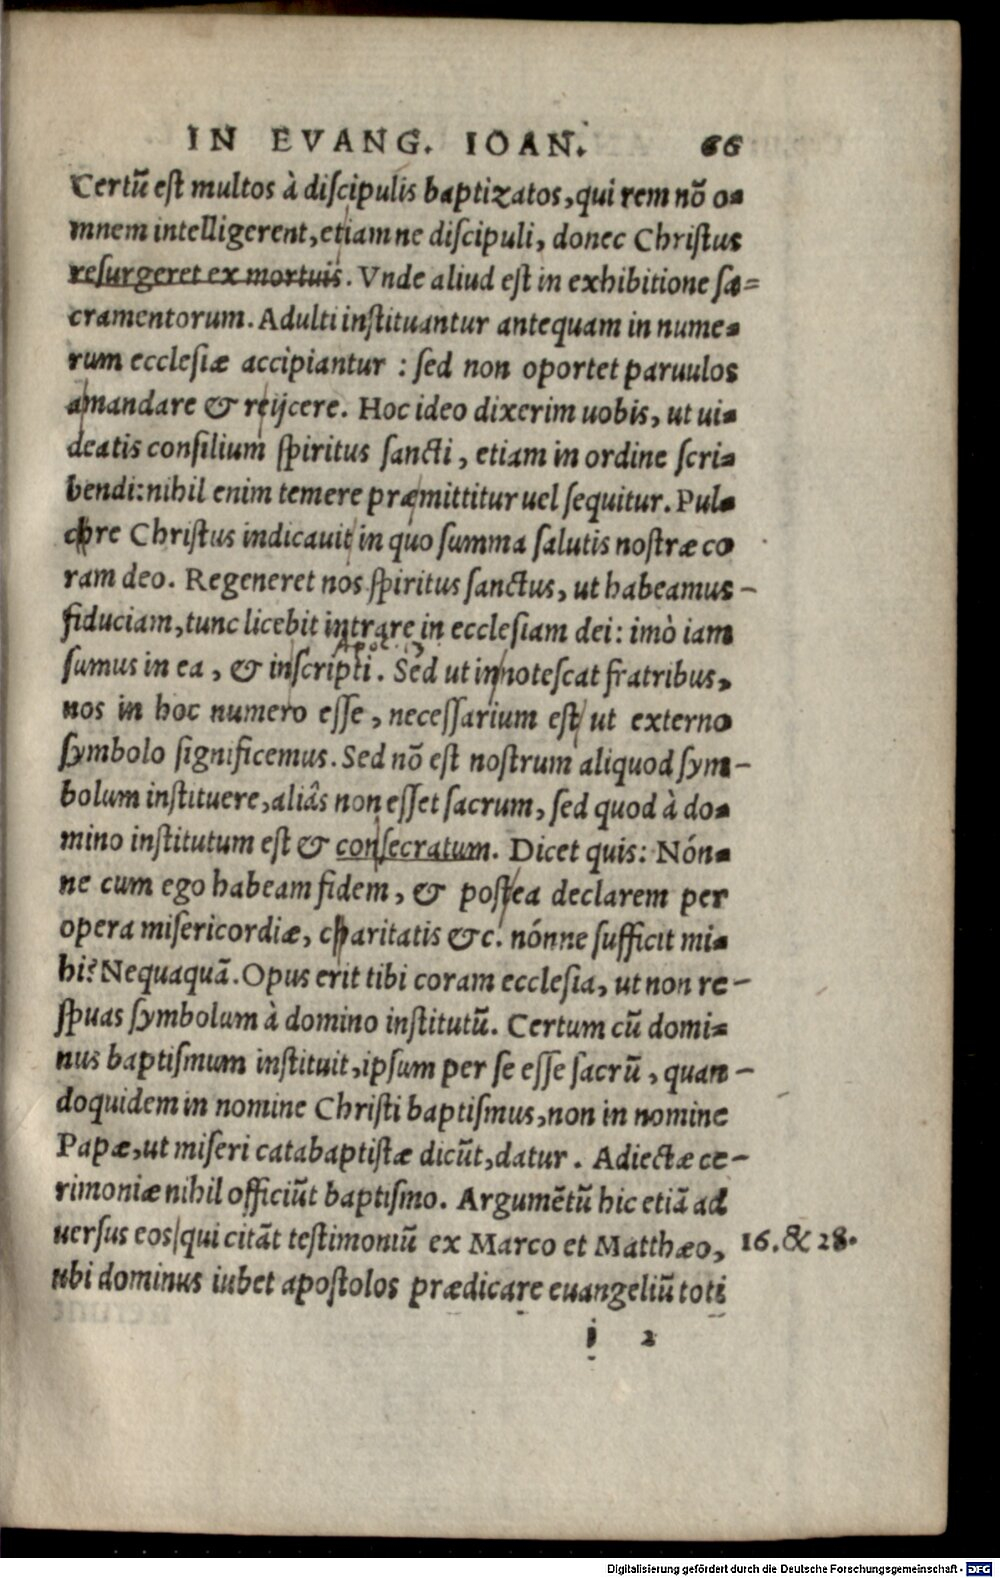 IN EVANG. IOAN. 66
Certũ est multos à discipulis baptizatos, qui rem nõ o-
mnem intelligerent, etiam ne discipuli, donec Christus
resurgeret ex mortuis. Vnde aliud est in exhibitione sa-
cramentorum. Adulti instituantur antequam in nume-
rum ecclesiæ accipiantur : sed non oportet paruulos
amandare & reijcere. Hoc ideo dixerim uobis, ut ui-
deatis consilium spiritus sancti, etiam in ordine scri-
bendi: nihil enim temere præmittitur uel sequitur. Pul-
chre Christus indicauit in quo summa salutis nostræ co
ram deo. Regeneret nos spiritus sanctus, ut habeamus
fiduciam, tunc licebit intrare in ecclesiam dei: imò iam
sumus in ea, & inscripti. Sed ut innotescat fratribus,
nos in hoc numero esse, necessarium est ut externo
symbolo significemus. Sed nõ est nostrum aliquod sym-
bolum instituere, aliâs non esset sacrum, sed quod à do-
mino institutum est & consecratum. Dicet quis: Nón-
ne cum ego habeam fidem, & postea declarem per
opera misericordiæ, charitatis &c. nónne sufficit mi-
hi? Nequaquã. Opus erit tibi coram ecclesia, ut non re-
spuas symbolum à domino institutũ. Certum cũ domi-
nus baptismum instituit, ipsum per se esse sacrũ, quan-
doquidem in nomine Christi baptismus, non in nomine
Papæ, ut miseri catabaptistæ dicũt, datur. Adiectæ ce-
rimoniæ nihil officiũt baptismo. Argumẽtũ hic etiã ad
uersus eos qui citãt testimoniũ ex Marco et Matthæo, 16. & 28.
ubi dominus iubet apostolos prædicare euangeliũ toti
i 2
Digitalisierung gefördert durch die Deutsche Forschungsgemeinschaft - DFG